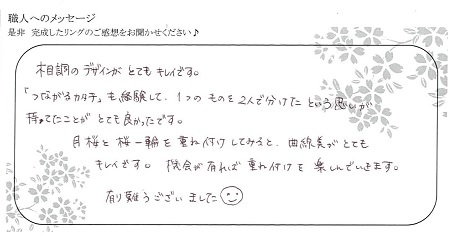 職人へのメッセージ
是非 完成したリングのご感想をお聞かせください♪
木目調のデザインがとてもキレイです。
「つながるカタチ」も経験して、1つのものを2人で分けたという思いが
持てたことがとても良かったです。
月桜と桜一輪を重ね付けしてみると、曲線美がとても
キレイです。機会が有れば重ね付けを楽しんでいきます。
有り難うございました